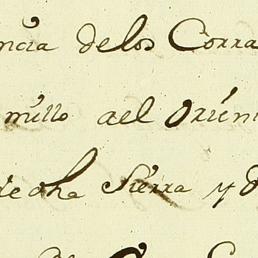 ncia delos Corra
millo ael Orien
de oha Sierra y